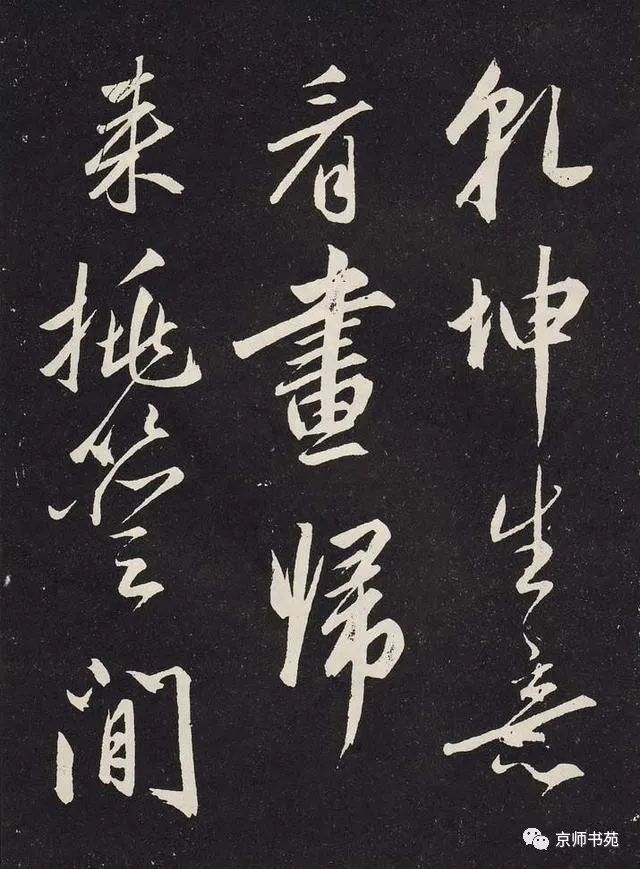 乾坤生意
看畫歸
來挑閒
京师书苑